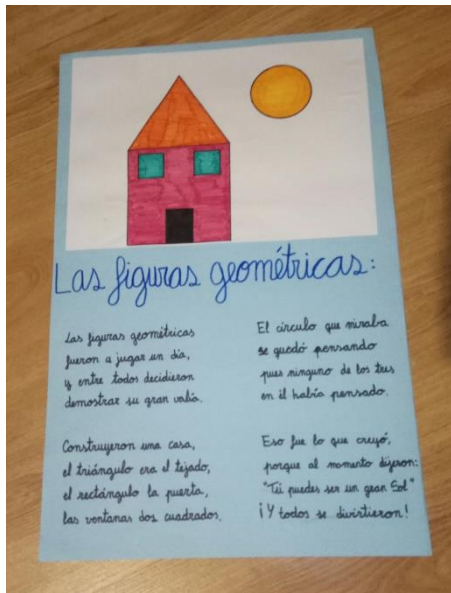 Las figuras geométricas:
Las figuras geométricas
fueron a jugar un día,
y entre todos decidieron
demostrar su gran valía.
Construyeron una casa,
el triángulo era el tejado,
el rectángulo la puerta,
las ventanas dos cuadrados.
El círculo que miraba
se quedó pensando
pues ninguno de los tres
en él había pensado.
Eso fue lo que creyó,
porque al momento dijeron:
"Tú puedes ser un gran Sol"
¡Y todos se divirtieron!